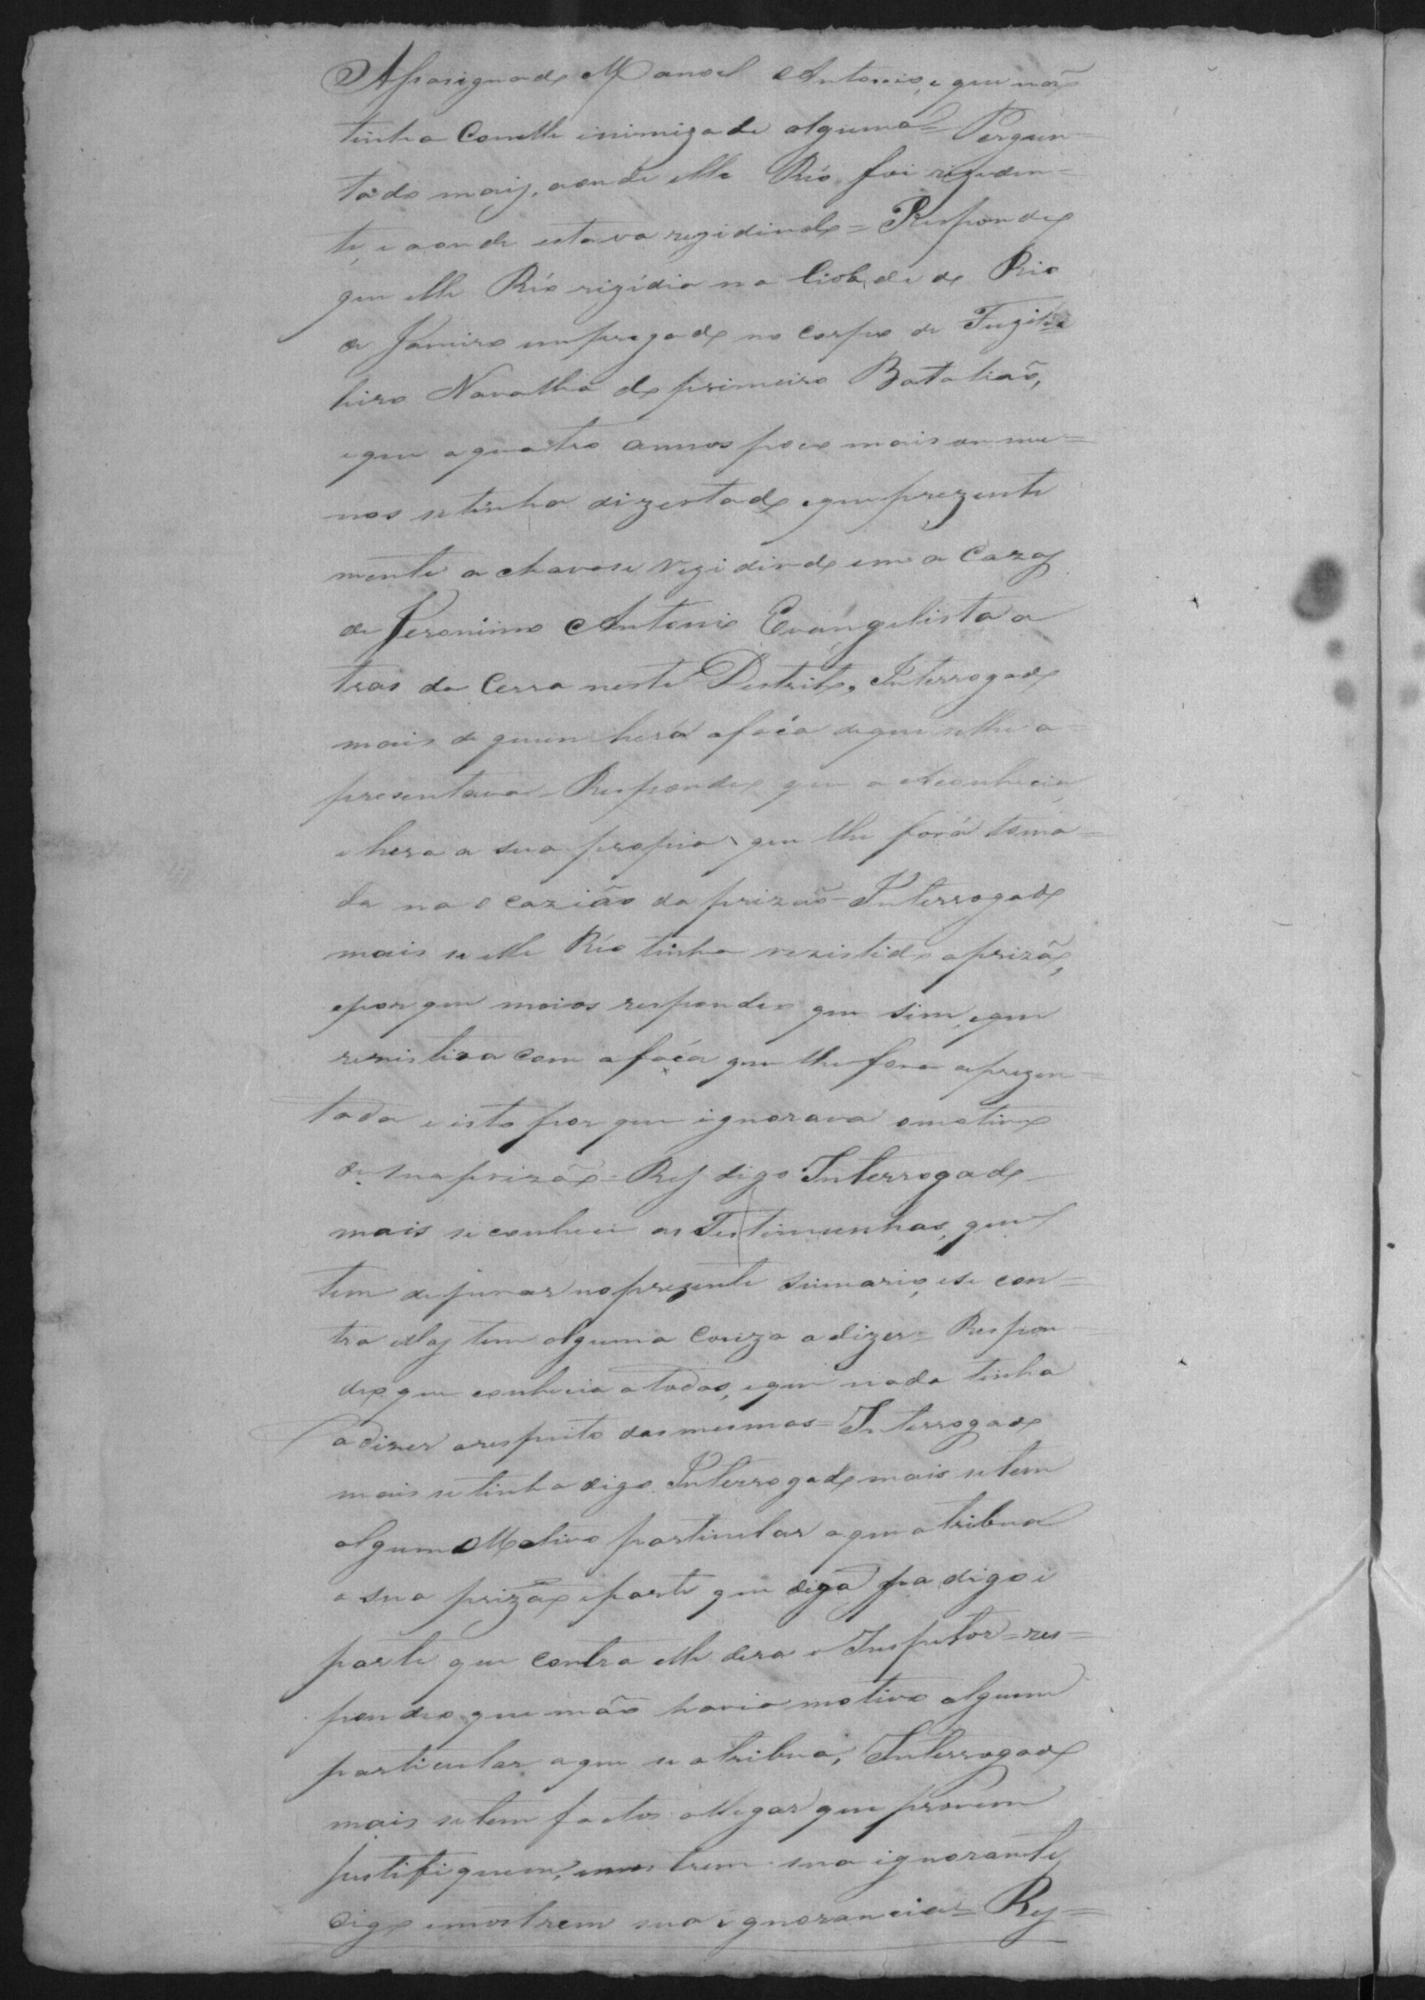 Assasignado Manoel Antonio, e que não
tinha Comelle inimizade alguma = Pergun=
tado mais, aonde elle Réo foi rezeden=
te, e aonde estava rezidindo = Respondeo
que elle Réo rizídia na Cidade do Rio
de Janeiro empregado no Corpo de Fuzile
heiro Navalha do primeiro Batalhaõ,
e que a quatro annos poco mais ou me=
nos se tinha dizertado, e que prezente
mente a chavase rezidindo em a Caza
de Jeronimo Antonio Evángelista a
tras da Cerra neste Destrito, Interrogado
mais de quem hera a faca de que se lhe a=
presentava = Respondeo que a reconhecia
e hera a sua propia, que lhe forá toma=
da na ocaziaõ da prizaõ = Interrogado
mais se elle Réo tinha rezistido a prizaõ,
e por que meios respondeo que sim, e que
rezistira com a faca que lhe fora aprezen=
tada e isto por que ignorava o motivo
de sua prizaõ = Res digo Interrogado
mais se conhece as Testimunhas, que
tem de jurar no prezente Sumario, e se con=
tra ellas tem alguma Couza a dizer = Respon
deo que conhecia a todas, e que nada tinha
a dizer a respeito das mesmas = Interrogado
mais se tinha digo Interrogado mais se tem
algum Motivo particular a que atribua
a sua prizaõ e parte que diga pa digo e
parte que contra elle dera o Inspetor = res=
pondeo que naõ havia motivo algum
particular a que se atribua, Interrogado
mais se tem factos allegar que provem
Justifiquem, e mostrem sua ignorante,
digo e mostrem sua ignorancia = Res=